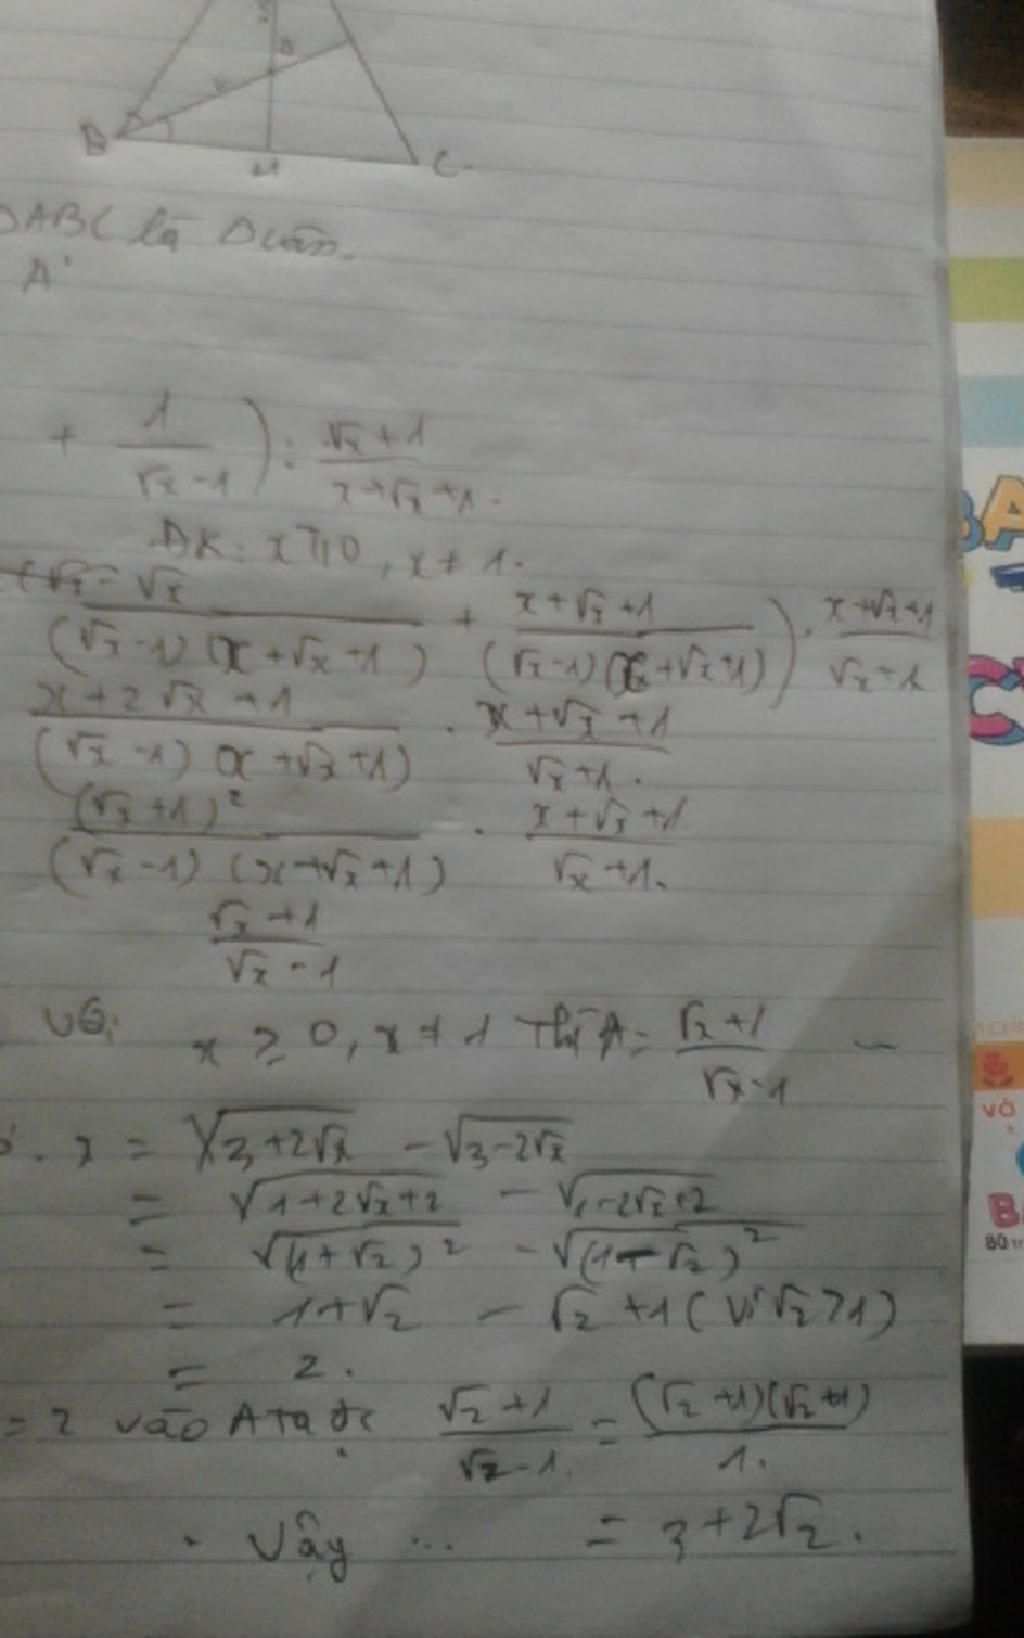 B
H
C
ΔABC là Δ cân.
A
+ 1/(√x - 1)) : (√x + 1)/(x + √x + 1).
ĐK: x ≥ 0, x ≠ 1.
√x/((√x - 1)(x + √x + 1)) + (x + √x + 1)/((√x - 1)(x + √x + 1))) . (x + √x + 1)/(√x + 1)
(x + 2√x + 1)/((√x - 1)(x + √x + 1)) . (x + √x + 1)/(√x + 1).
(√x + 1)²/((√x - 1)(x + √x + 1)) . (x + √x + 1)/(√x + 1).
(√x + 1)/(√x - 1)
Với x ≥ 0, x ≠ 1 thì A = (√x + 1)/(√x - 1)
x = √(3 + 2√2) - √(3 - 2√2)
= √(1 + 2√2 + 2) - √(1 - 2√2 + 2)
= √((1 + √2)²) - √((1 - √2)²)
= 1 + √2 - √2 + 1 (vì √2 > 1)
= 2.
= 2 vào A ta đc (√2 + 1)/(√2 - 1) = ((√2 + 1)(√2 + 1))/1.
Vậy ... = 3 + 2√2.
BA
C
VỞ
B